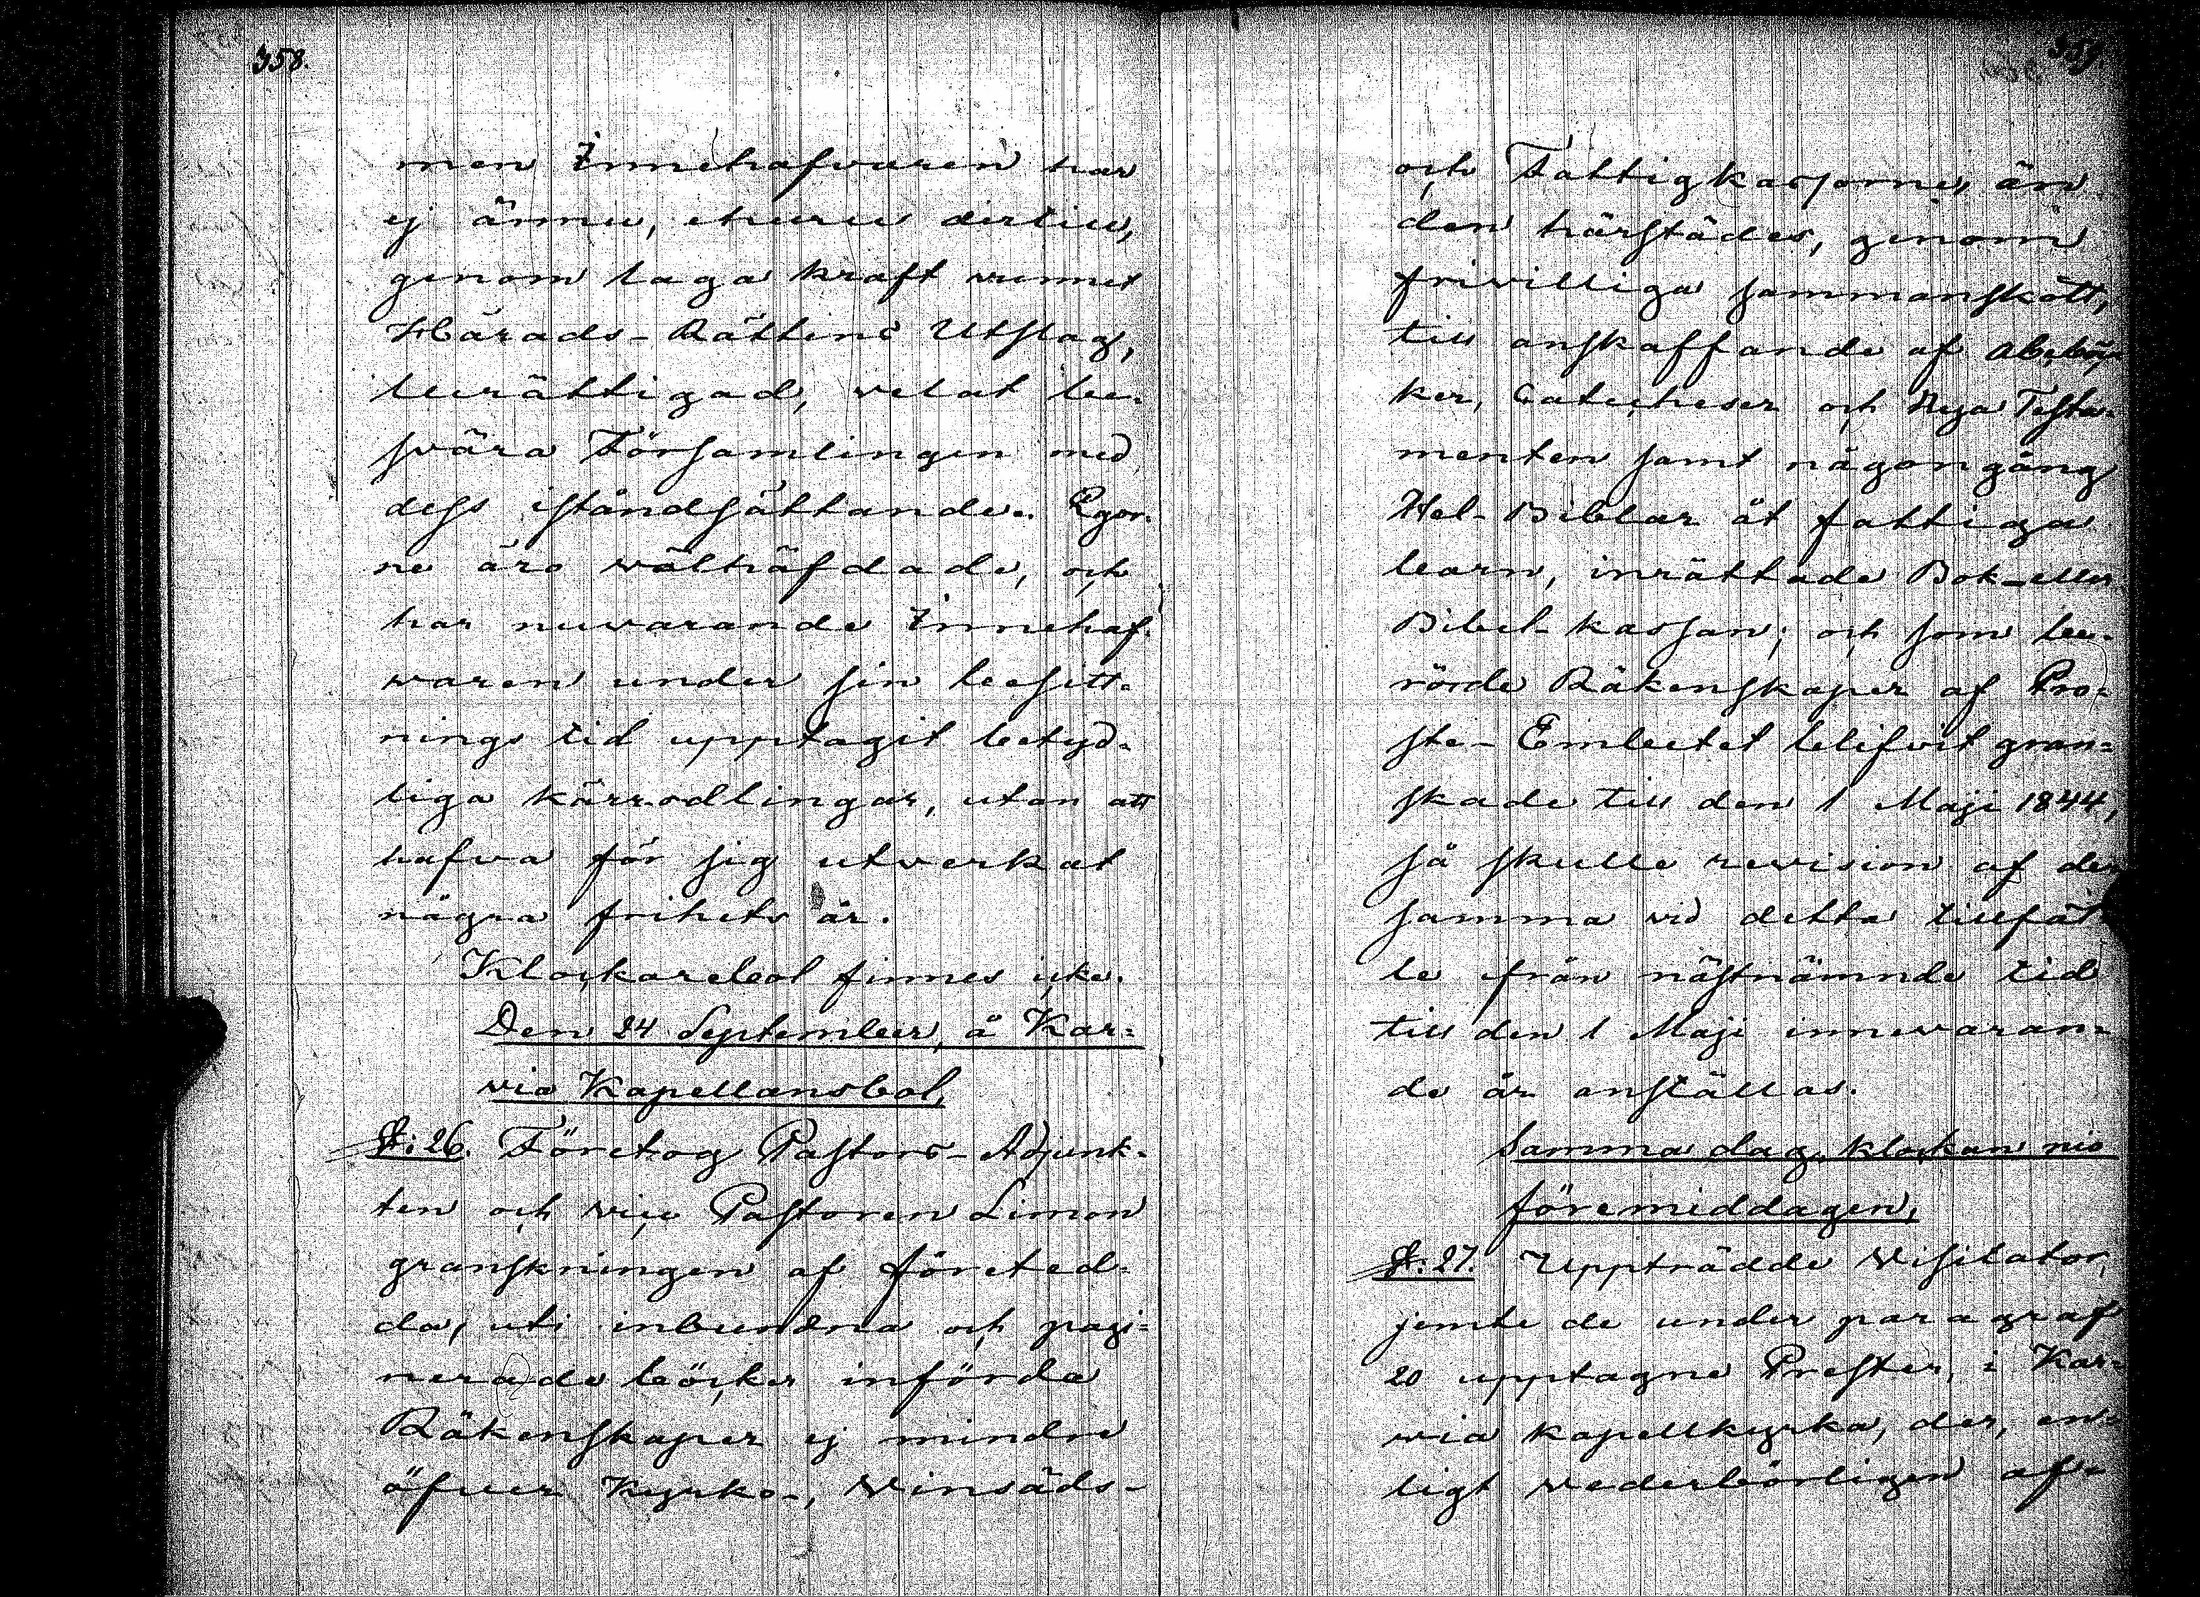 358.
men Innehafvaren har
ej ännu, churu dertill,
genom laga kraft vunnet
Härads-Rättens Utslag,
berättigad, velat be-
svära Församlingen med
dess iståndsättande. Egor-
ne äro välhäfdade, och
har nuvarande Innehaf-
waren under sin besitt-
nings tid upptagit betyd-
liga kärrodlingar, utan att
hafva för sig utverkat
några frihets år.
Klockarebol finnes icke.
Den 24 September, å Kar=
via Kapellansbol,
§: 26. Företog Pastors-Adjunk-
ten och vice Pastoren Limon
granskningen af företed-
da, uti inbundna och pagi-
nerade böcker införda
Räkenskaper ej mindre
öfver Kyrko-, Vinsäds-
359.
och Fattigkassorne, än
den härstädes, genom
frivilliga sammanskott,
till anskaffande af Abcbö-
ker, Catecheser och Nya Testa-
menten samt någongång
Hel-Biblar åt fattiga
barn, inrättade Bok-eller
Bibel-kassan; och som be-
rörde Räkenskaper af Pro-
ste-Embetet blifvit gran=
skade till den 1 Maji 1844,
så skulle revision af den
samma vid detta tillfäl
le från nästnämnde tid
till den 1 Maji innevaran-
de år anställas.
Samma dag, klockan nio
föremiddagen,
§: 27. Uppträdde Visitator,
jemte de under paragraf
20 upptagne Prester, i Kar-
via kapellkyrka, der, en-
ligt vederbörligen af-